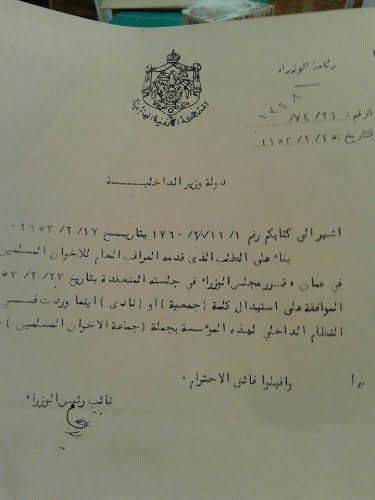 رئاسة الوزراء
المملكة الأردنية الهاشمية
الرقم :
التاريخ : ١٩٥٣/٢/٢٥
دولة وزير الداخليـــــة
اشير الى كتابكم رقم ١٧٦٠/٧/١١/١ بتاريـــخ ١٩٥٣/٢/١٧ .
بناء على الطلب الذى قدمه المراقب العام للاخوان المسلمين
في عمان ، قرر مجلس الوزراء في جلسته المنعقدة بتاريخ ٢٣/ ٢/
الموافقة على استبدال كلمة (جمعية) او (نادى) اينما وردت فـــي
النظام الداخلي لهذه المؤسسة بجملة (جماعة الاخوان المسلمين )
واقبلوا فائق الاحترام .
نائب رئيس الوزراء